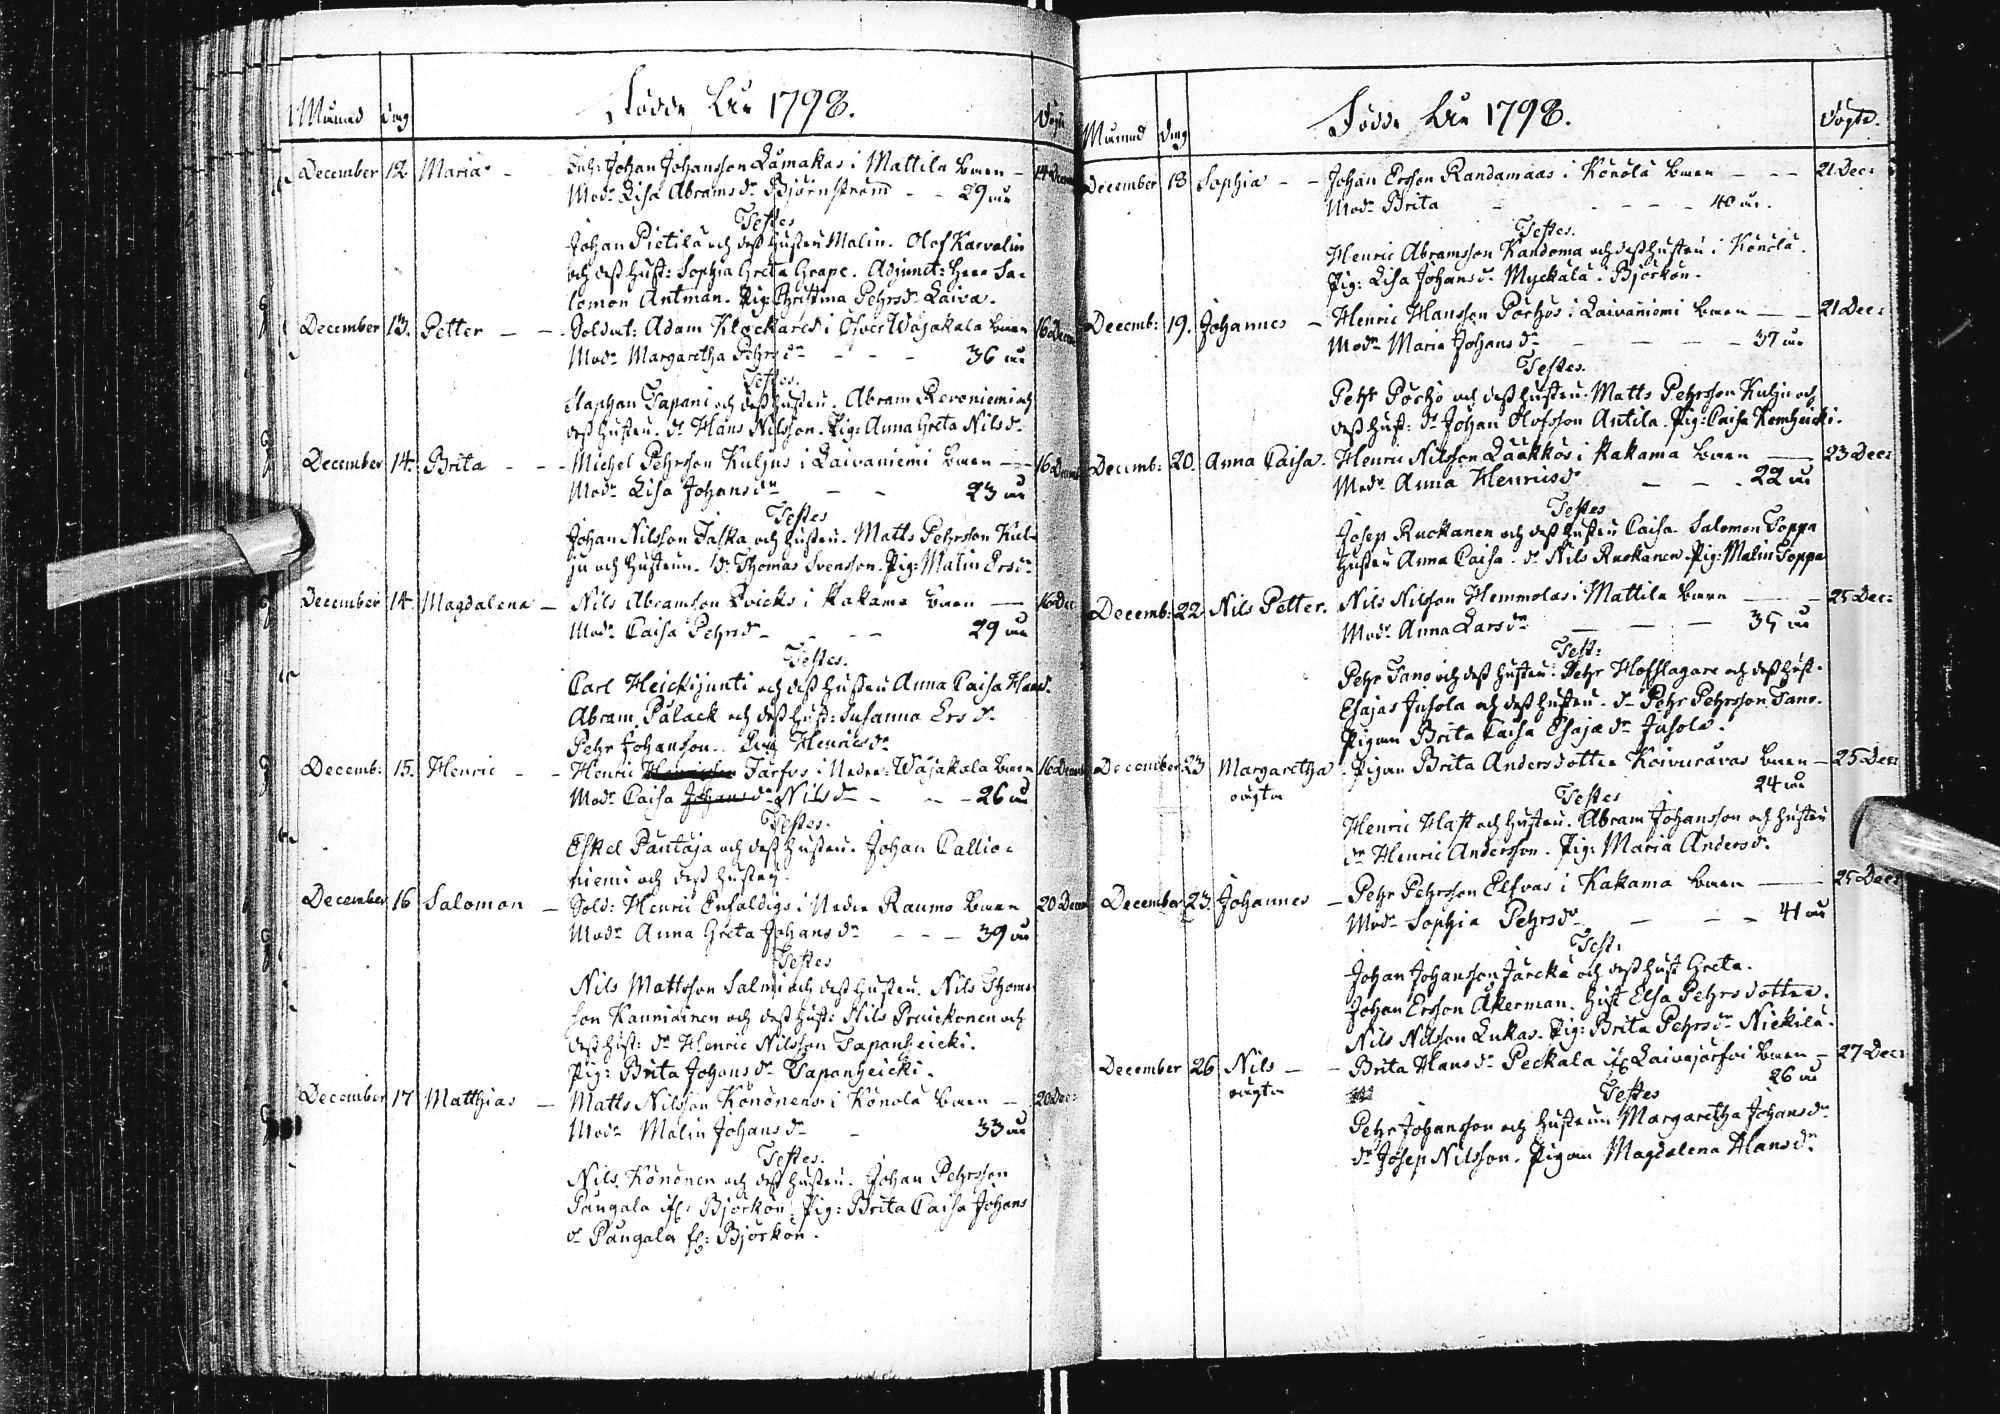 Månad dag Födde År 1798. Döpt.
December 12 Maria - - Johan Johansson Lämakas i Mattila barn - 14 Decem
Modr Lisa Abrams dr Björnström - - 29 år
Testes
Johan Pietilä och dess hustru Malin. Olof Karvolin
och dess hust: Sophia Greta Grape. Adjunct: Herr Sa-
lomon Antman. Pig: Christina Pehrs dr Laiva.
December 13. Petter - - Soldat: Adam Klockares i Öfver Wojakala barn 16 Decem
Modr Margaretha Pehrs dr - - - 36 år
Testes.
Staphan Tapani och dess hustru. Abram Revoniemi och
dess hustru. dr Hans Nilsson. Pig: Anna Greta Nils dr
December 14. Brita - - - Michel Pehrsson Kuljus i Laivaniemi barn - 16 Decemb
Modr Lisa Johans dr - - 23 år
Testes
Johan Nilsson Taska och hustru. Matts Pehrsson Kul-
ju och hustrun. dr Thomas Svensson. Pig: Malin Ers dr
December 14. Magdalena - Nils Abramsson Qvicks i Kakama barn - 16 Dec:
Modr Caisa Pehrs dr - - - 29 år
Testes.
Carl Heickijunti och dess hustru Anna Caisa Hans dr
Abram Palack och dess hust: Susanna Ers dr
Pehr Johansson. Henrics dr
Decemb: 15. Henric - - Henric Henricsson Tärfvs i Neder: Wojakala barn 16 Decem
Modr Caisa Johans dr Nils dr - - - 26 år
Testes.
Eskel Pautaja och dess hustru. Johan Callio-
niemi och dess hustru.
December 16 Salomon - Sold: Henric Enfaldigs i Neder Raumo barn 20 Decem
Modr Anna Greta Johans dr - - - 39 år
Testes
Nils Mattsson Salmi och dess hustru. Nils Thoms-
son Kauniainen och dess hust: Nils Pruickonen och
dess hust: dr Henric Nilsson Tapanheicki.
Pig: Brita Johans dr Tapanheicki.
December 17 Matthias - Matts Nilsson Könönens i Könölä barn - 20 Dec:
Modr Malin Johans dr - 33 år
Testes.
Nils Könönen och dess hustru. Johan Pehrsson
Paugala if: Björkön: Pig: Brita Caisa Johans
dr Paugala if: Björkön.
Månad dag Födde År 1798. Döpte.
December 18 Sophia - - Johan Ersson Randamaas i Könölä barn - - - 21 Dec:
Modr Brita - - - - - 40 år.
Testes.
Henric Abramsson Kandoma och dess hustru i Könölä.
Pig: Lisa Johans dr Myckälä i Björkön.
Decemb: 19. Johannes - Henric Hansson Pörhös i Laivaniemi barn - - 21 Dec:
Modr Maria Johans dr - - - - 37 år
Testes.
Pehr Pörhö och dess hustru. Matts Pehrsson Kulju och
dess hust: dr Johan Olofsson Antila. Pig: Caisa Kemheicki.
Decemb: 20. Anna Caisa. Henric Nilsson Lääkkös i Kakama barn - 23 Dec:
Modr Anna Henrics dr - - - 22 år
Testes
Josep Ruokanen och dess hustru Caisa. Salomon Toppa
hustru Anna Caisa. dr Nils Ruokanen Pig: Malin Toppa
Decemb: 22. Nils Petter. Nils Nilsson Hemmolas i Mattila barn - - 25 Dec:
Modr Anna Lars dr - - - 35 år
Test:
Pehr Tano och dess hustru: Pehr Hofslagare och dess hust.
Esajas Jusola och dess hustru. dr Pehr Pehrsson Tano.
Pigan Brita Caisa Esajæ dr Jusola.
December 23 Margaretha Pigan Brita Andersdotter Koivuravas barn - 25 Dec:
oägta 24 år
Testes
Henric Hast och hustru. Abram Johansson och hustru
dr Henric Andersson. Pig: Maria Anders d.
December 23. Johannes - Pehr Pehrsson Elfvas i Kakama barn - 25 Dec:
Modr Sophia Pehrs dr - - - 41 år
Test:
Johan Johansson Järckä och dess hust Greta.
Johan Ersson Åkerman. Hust Elsa Pehrsdotter.
Nils Nilsson Lukas. Pig: Brita Pehrs dr Nickilä.
December 26 Nils - - Brita Hans dr Peckala if Laivajärfvi barn - 27 Dec:
oägta 26 år
Testes
Pehr Johansson och hustrun Margaretha Johans dr
dr Josep Nilsson. Pigan Magdalena Hans dr